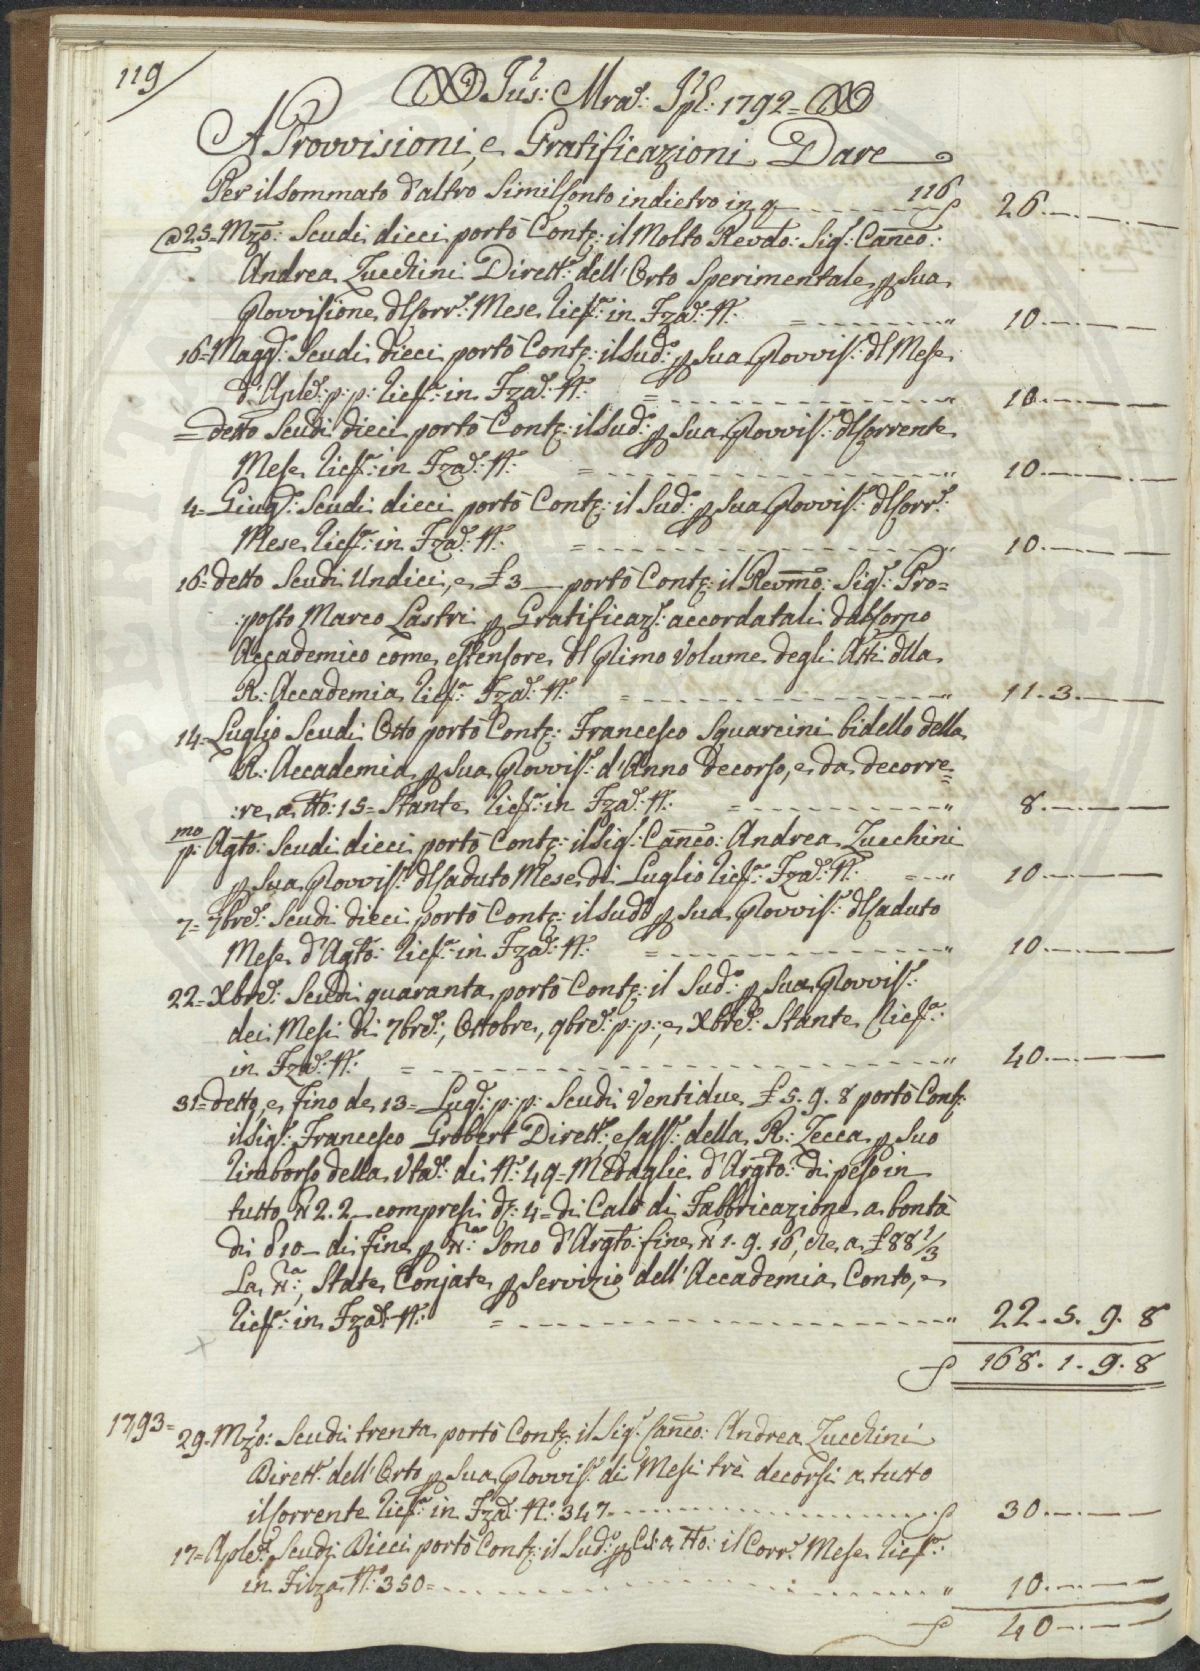 119
Jus: Mrad: Jpl: 1792=
A Provvisioni, e Gratificazioni Dare
Per il Sommato d'altro Simil Conto indietro in q 116 26
@ 25= Mzo: Scudi dieci portò Contg: il Molto Revdo: Sigr: Canco:
Andrea Zucchini Dirett: dell'Orto Sperimentale p Sua
Provvisione del Corr: Mese Ricf: in Fza: N: = " 10
16= Magg: Scudi dieci portò Contg: il Sud: p Sua Provvis: del Mese
di Aple: p:p: Ricf: in Fza: N: = " 10
= detto Scudi dieci portò Contg: il Sud: p Sua Provvis: del Corrente
Mese Ricf: in Fza: N: = " 10
4= Giug: Scudi dieci portò Contg: il Sud: p Sua Provvis: del Corr:
Mese Ricf: in Fza: N: = " 10
16= detto Scudi Undici, e £ 3 portò Contg: il Revmo: Sig: Pro=
:posto Marco Lastri p Gratificaz: accordatali dal Corpo
Accademico come estensore del Primo Volume degli Atti della
R: Accademia Ricf: Fza: N: " 11.3.
14= Luglio Scudi Otto portò Contg: Francesco Squarcini bidello della
R: Accademia p Sua Provvis: d'Anno decorso, e da decorre=
:re a tto: 15= Stante Ricf: in Fza: N: = " 8
pmo: Agto: Scudi dieci portò Contg: il Sig: Canco: Andrea Zucchini
p Sua Provvis: del Caduto Mese di Luglio Ricf: Fza: N: = " 10
7= 7bre: Scudi dieci portò Contg: il Sudo p Sua Provvis: del Caduto
Mese d'Agto: Ricf: in Fza: N: = " 10
22= Xbre: Scudi quaranta portò Contg: il Sud: p Sua Provvis:
dei Mesi di 7bre:, Ottobre, 9bre: p:p:, e Xbre: Stante Ricf:
in Fza: N: = " 40
31= detto, e fino de 13= Lug: p:p: Scudi Ventidue £ 5.9.8 portò Contg:
il Sig: Francesco Grobert Dirett:, e Cass: della R: Zecca p Suo
Rimborso della Vta: di N: 49= Medaglie d'Argto: di peso in
tutto 2.2 compresi d: 4= di Calo di Fabbricazione a bontà
di 10 di fine p Sono d'Argto: fine 1.9.16, che a £ 88 1/3
La, State Conjate p Servizio dell'Accademia Conto, e
Ricf: in Fza: N: = " 22.5.9.8
168.1.9.8
1793= 29= Mzo: Scudi trenta portò Contg: il Sig: Canco: Andrea Zucchini
Dirett: dell'Orto p Sua Provvis: di Mesi trè decorsi a tutto
il Corrente Ricf: in Fza: N: 347 30
17= Aple: Scudi Dieci portò Contg: il Sud: p C.s: a tto: il Corr: Mese Ricf:
in Filza N: 350= " 10
40